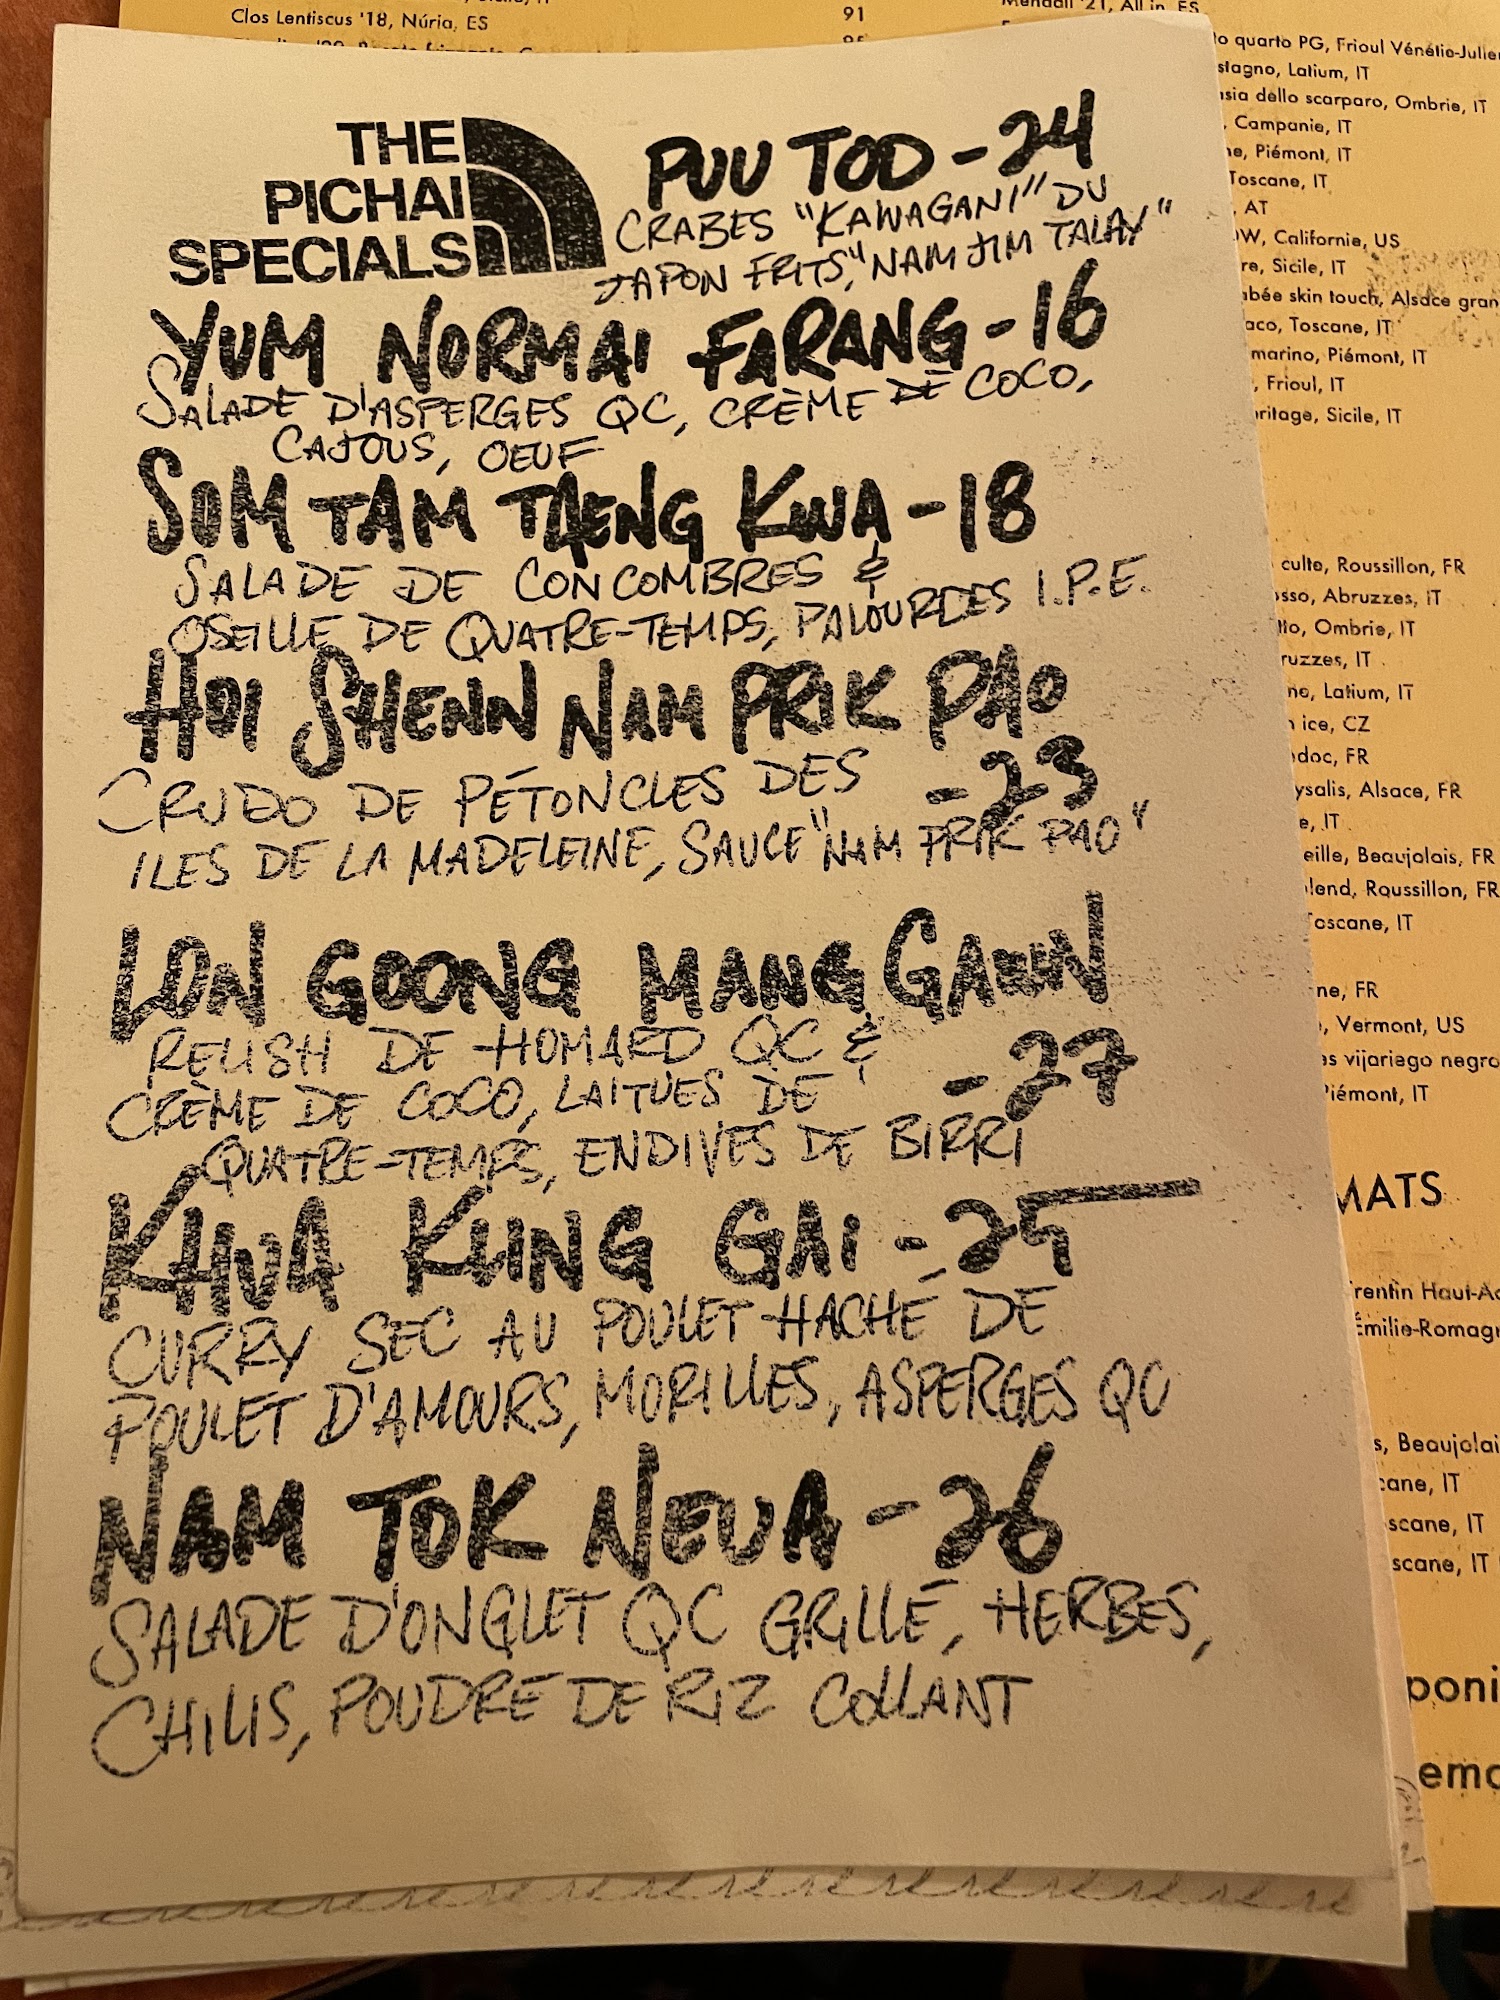 Clos Lentiscus '18, Núria, ES 91
Mendall '21, All in, ES
THE
PICHAI
SPECIALS
PUU TOD - 24
CRABES "KAWAGANI" DU
JAPON FRITS, "NAM JIM TALAY"
YUM NORMAI FARANG - 16
SALADE D'ASPERGES QC, CRÈME DE COCO,
CAJOUS, OEUF
SOM TAM TAENG KWA - 18
SALADE DE CONCOMBRES &
OSEILLE DE QUATRE-TEMPS, PALOURDES I.P.E.
HOI SHENN NAM PRIK PAO
- 23
CRUDO DE PÉTONCLES DES
ILES DE LA MADELEINE, SAUCE "NAM PRIK PAO"
LON GOONG MANG GAENN
- 27
RELISH DE HOMARD QC &
CRÈME DE COCO, LAITUES DE
QUATRE-TEMPS, ENDIVES DE BIRRI
KHUA KLING GAI - 25
CURRY SEC AU POULET HACHÉ DE
POULET D'AMOURS, MORILLES, ASPERGES QC
NAM TOK NEUA - 26
SALADE D'ONGLET QC GRILLÉ, HERBES,
CHILIS, POUDRE DE RIZ COLLANT
quarto PG, Frioul Vénétie-Julie
Latium, IT
dello scarparo, Ombrie, IT
Campanie, IT
Piémont, IT
Toscane, IT
AT
Californie, US
Sicile, IT
skin touch, Alsace gran
Toscane, IT
marino, Piémont, IT
Frioul, IT
Sicile, IT
culte, Roussillon, FR
Abruzzes, IT
Ombrie, IT
IT
Latium, IT
ice, CZ
FR
Alsace, FR
IT
Beaujolais, FR
Roussillon, FR
Toscane, IT
FR
Vermont, US
vijariego negro
Piémont, IT
MATS
Haut-Ad
Émilie-Romagn
Beaujolai
IT
IT
IT
poni
emo